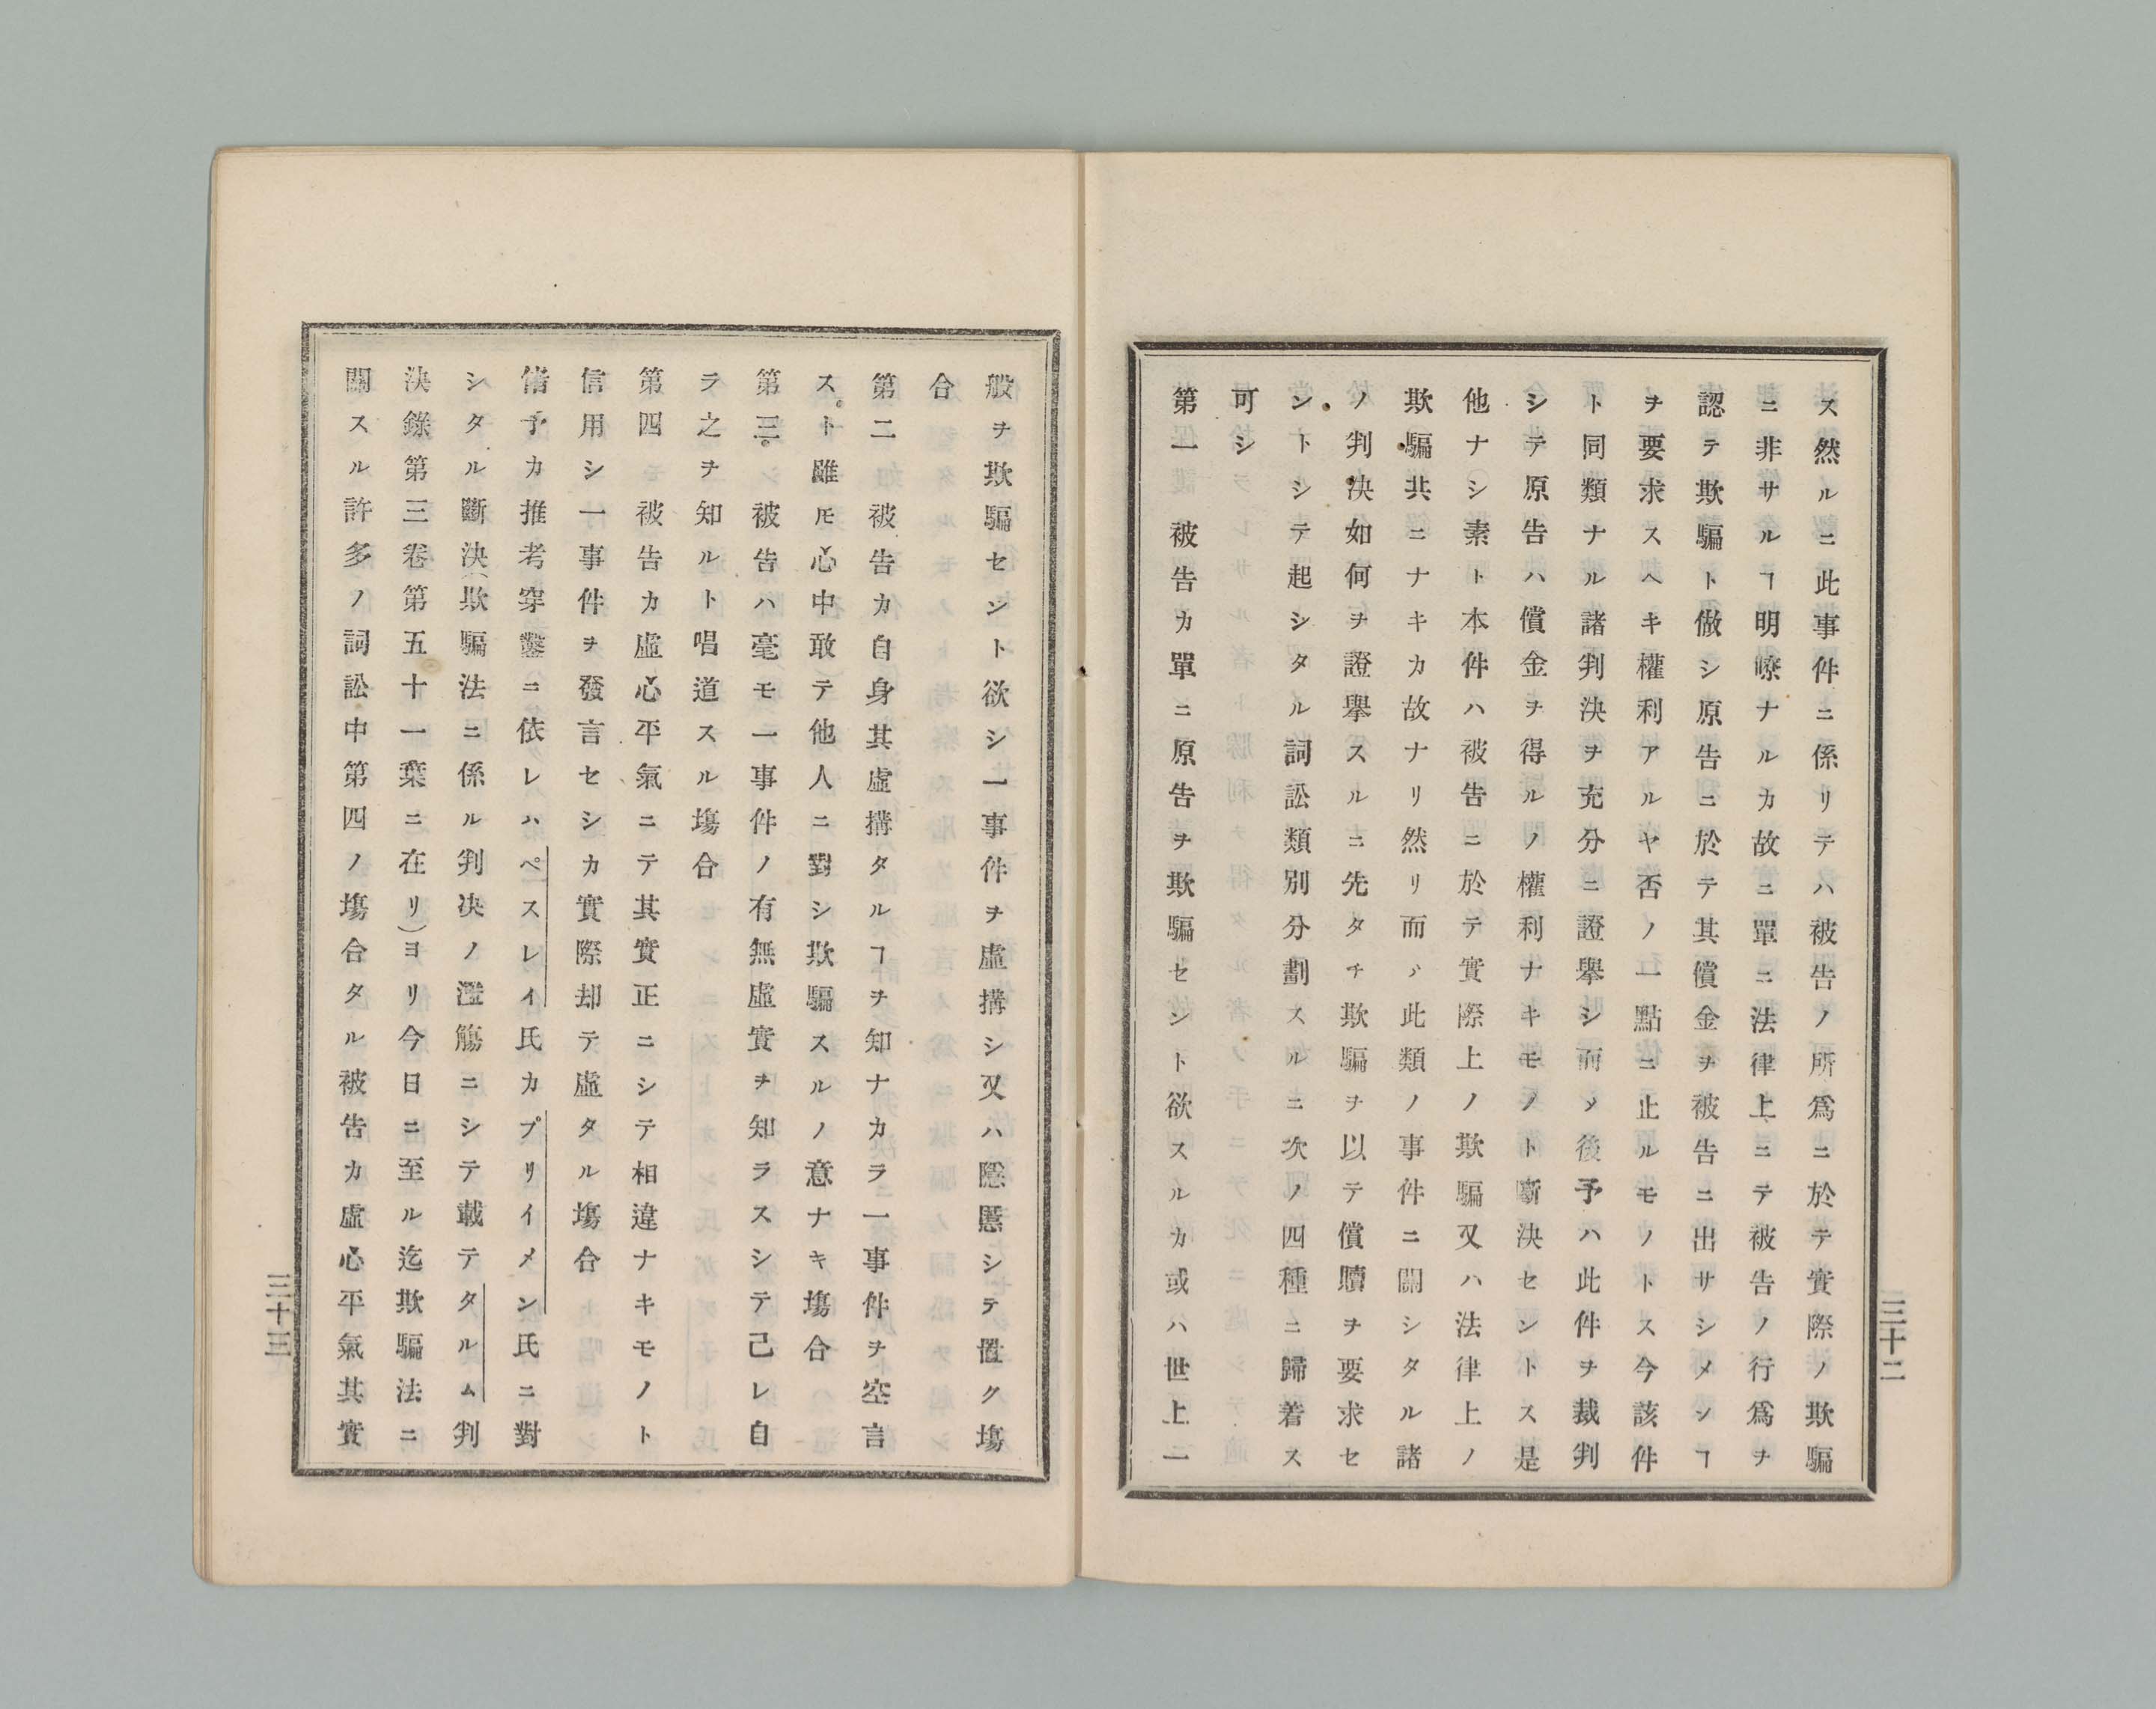 ス然ルニ此事件ニ係リテハ被告ノ所爲ニ於テ實際ノ欺騙
ニ非サルヿ明瞭ナルカ故ニ單ニ法律上ニテ被告ノ行爲ヲ
認テ欺騙ト倣シ原告ニ於テ其償金ヲ被告ニ出サシメンヿ
ヲ要求スヘキ權利アルヤ否ノ一點ニ止ルモノトス今該件
ト同類ナル諸判決ヲ充分ニ證擧シ而メ後予ハ此件ヲ裁判
シテ原告ハ償金ヲ得ルノ權利ナキモノト斷決セントス是
他ナシ素ト本件ハ被告ニ於テ實際上ノ欺騙又ハ法律上ノ
欺騙共ニナキカ故ナリ然リ而ノ此類ノ事件ニ關シタル諸
ノ判決如何ヲ證擧スルニ先タチ欺騙ヲ以テ償贖ヲ要求セ
ントシテ起シタル詞訟類別分劃スルニ次ノ四種ニ歸着ス
可シ
第一被告カ單ニ原告ヲ欺騙セント欲スルカ或ハ世上一
三十二
般ヲ欺騙セント欲シ一事件ヲ虛搆シ又ハ隱慝シテ置ク塲
合
第二被告カ自身其虛搆タルヿヲ知ナカラ一事件ヲ空言
スト雖𪜈心中敢テ他人ニ對シ欺騙スルノ意ナキ塲合
第三被告ハ毫モ一事件ノ有無虛實ヲ知ラスシテ己レ自
ラ之ヲ知ルト唱道スル塲合
第四被告カ虛心平氣ニテ其實正ニシテ相違ナキモノト
信用シ一事件ヲ發言セシカ實際却テ虛タル塲合
偖予カ推考穿鑿ニ依レハペスレイ氏カプリイメン氏ニ對
シタル斷決(欺騙法ニ係ル判决ノ濫觴ニシテ載テタルム判
決錄第三卷第五十一葉ニ在リ)ヨリ今日ニ至ル迄欺騙法ニ
關スル許多ノ詞訟中第四ノ塲合タル被告カ虛心平氣其實
三十三